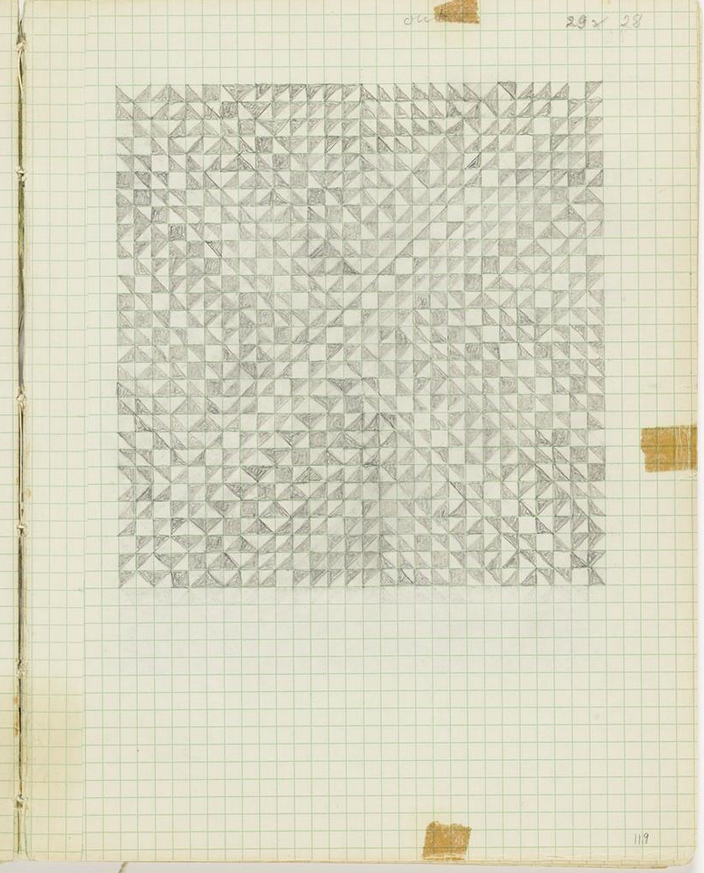 29 x 28
119